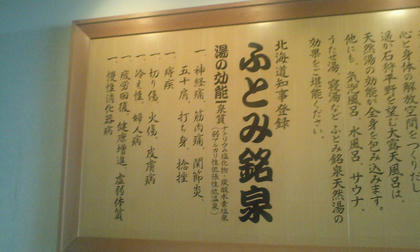 心と身体の解放空間をつくりだし
遥か石狩平野を望む大露天風呂は、
天然湯の効能が全身を包み込みます。
他にも、気泡風呂、水風呂、サウナ、
うたせ湯、寝湯などふとみ銘泉天然湯の
効果をご堪能ください。
北海道知事登録
ふとみ銘泉
湯の効能
泉質 ナトリウム塩化物・炭酸水素塩泉
(弱アルカリ性低張性低温泉)
一、神経痛、筋肉痛、関節炎、
五十肩、打ち身、捻挫
一、痔疾
一、切り傷、火傷、皮膚病
一、冷え性、婦人病
一、疲労回復、健康増進、虚弱体質
一、慢性消化器病